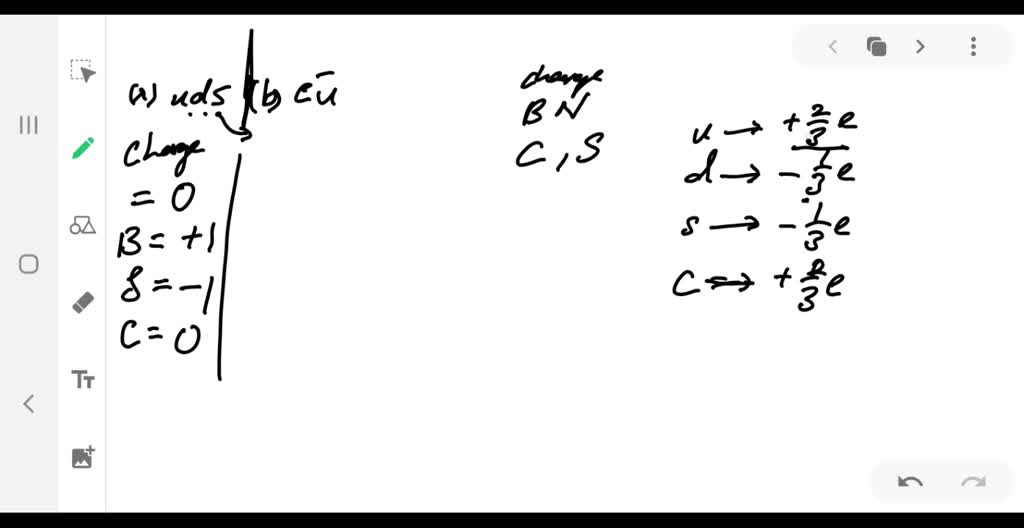 a) uds (b) cū
charge
= 0
B = +1
S = -1
C = 0
charge
B N
C, S
u → + 2/3 e
d → - 1/3 e
s → - 1/3 e
C → + 2/3 e
TT